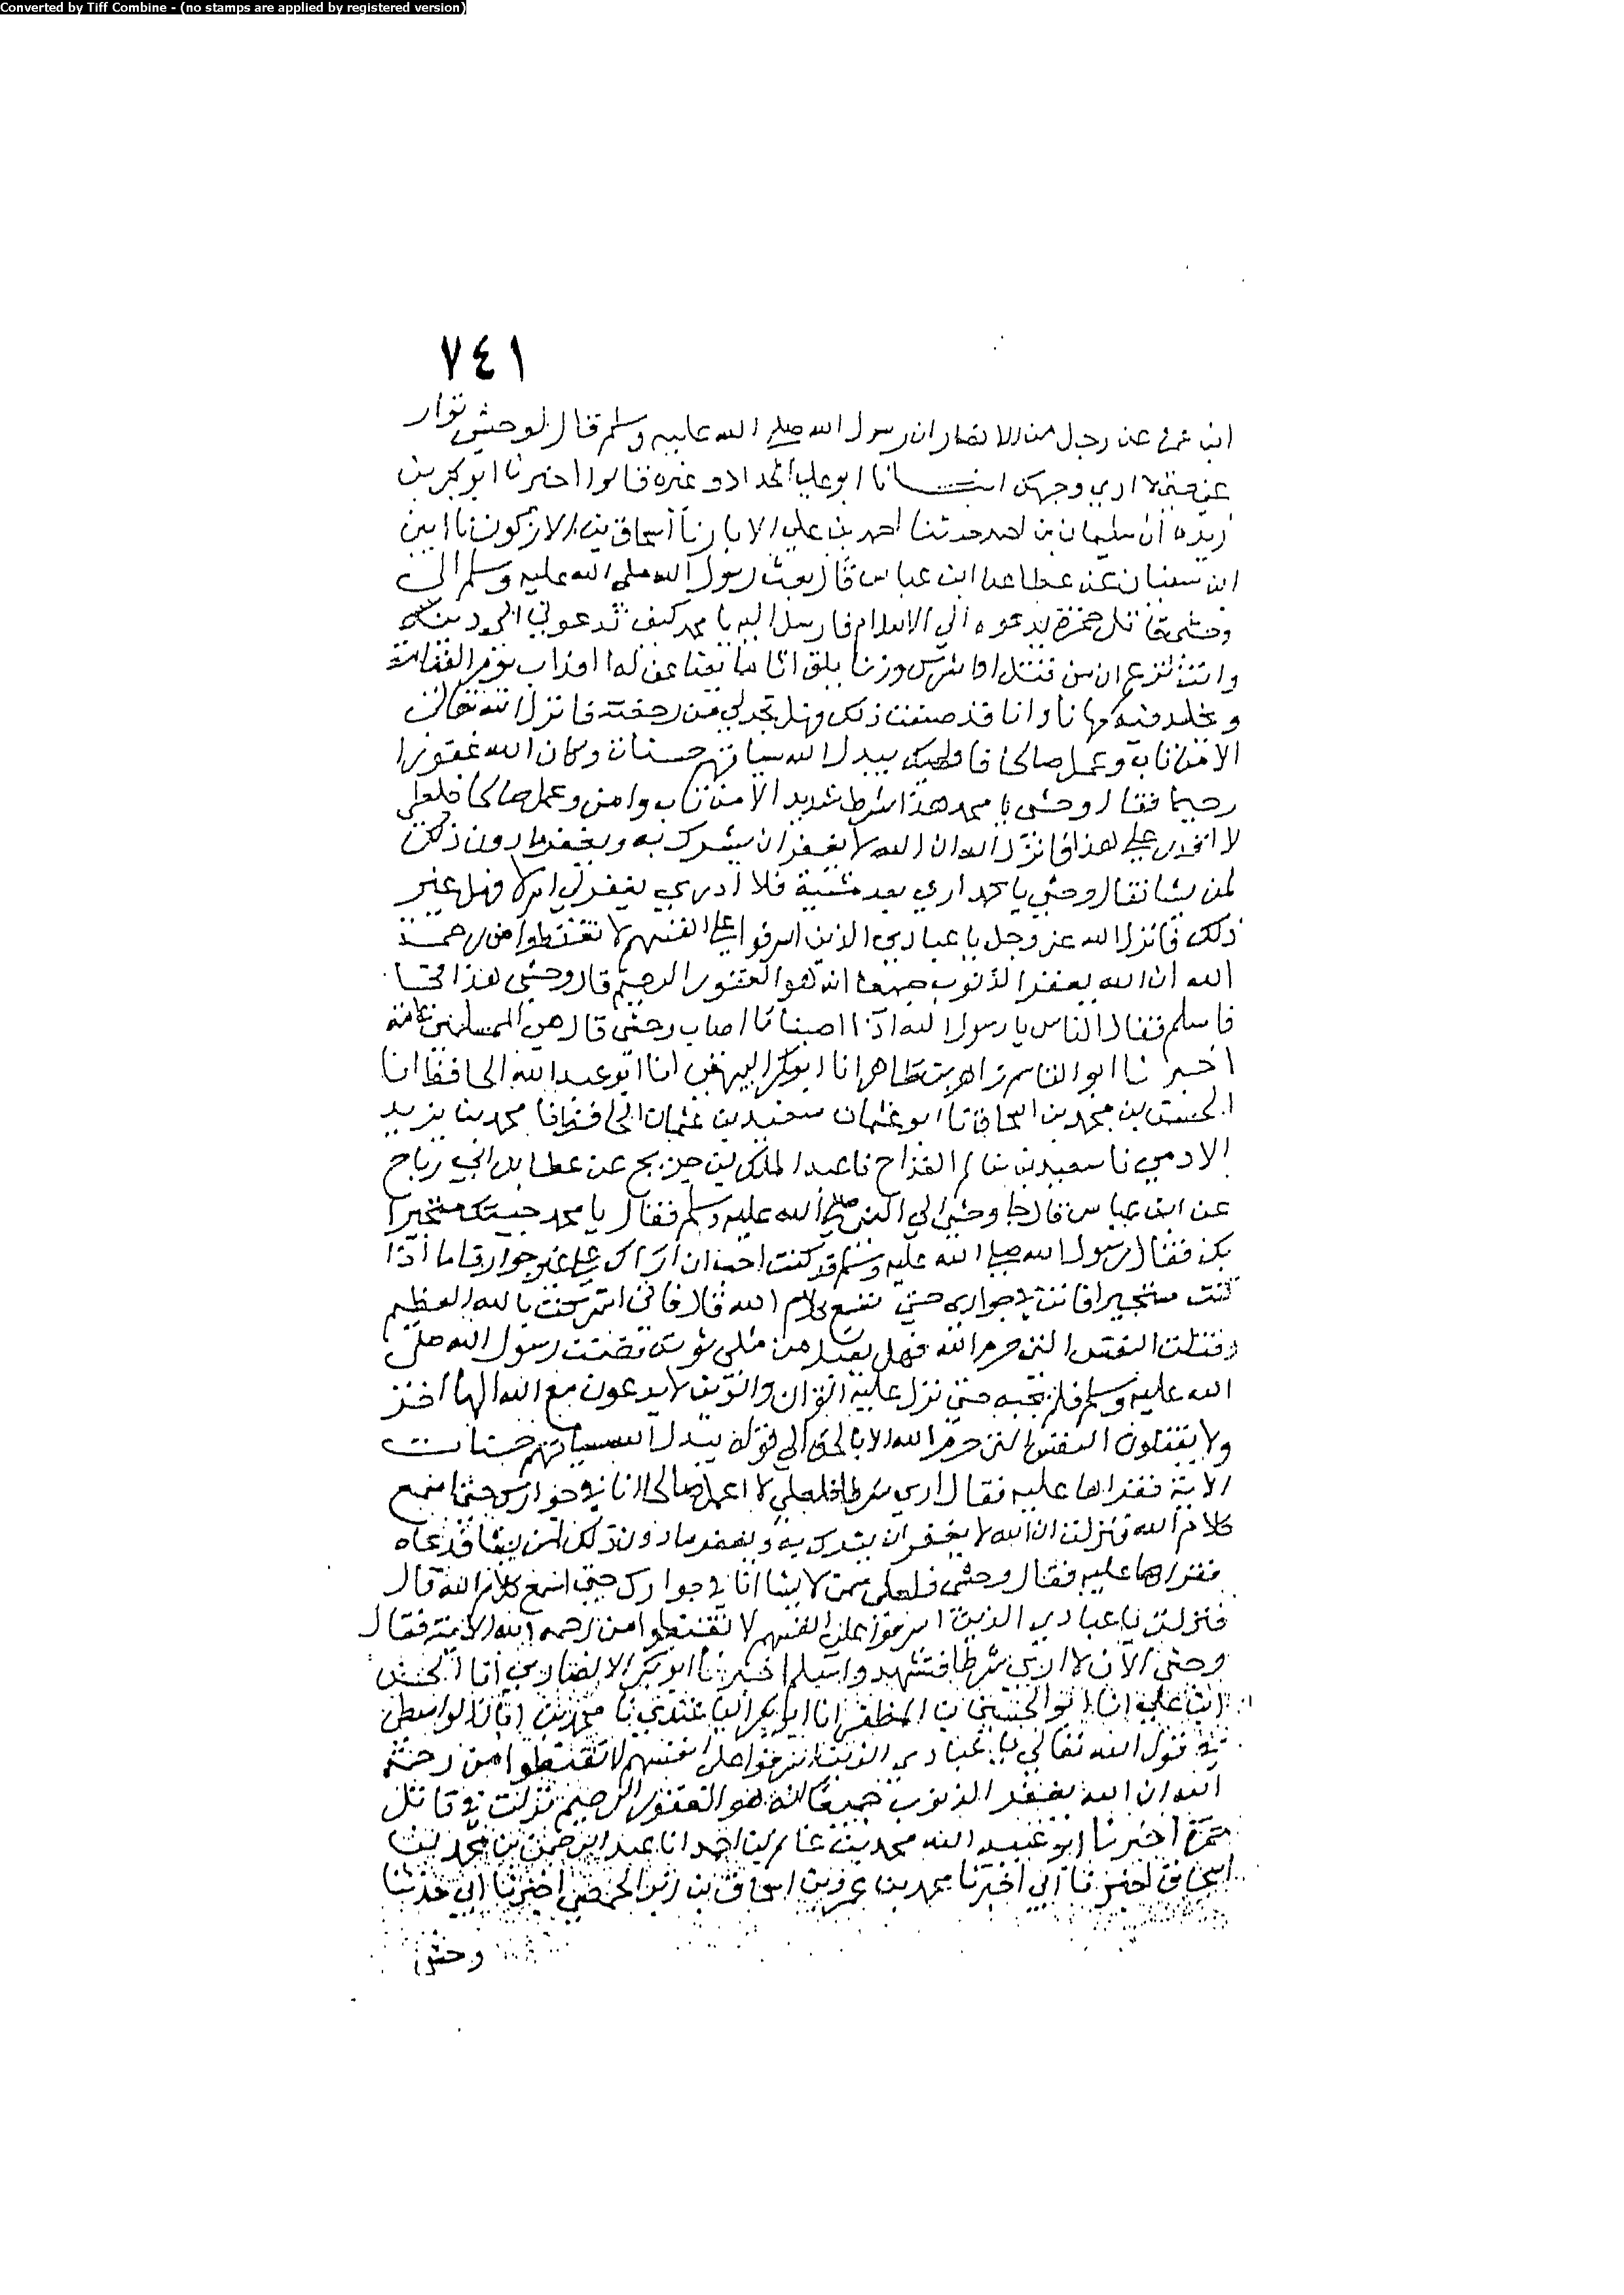 Converted by Tiff Combine - (no stamps are applied by registered version)
٧٤١
ابن عن رجل من الانصار ان رسول الله صلى الله عليه وسلم قال لوحشي توار
عني لا اري وجهك انا ابو علي الحداد وغيره قالوا اخبرنا ابو بكر بن
زيده ان سليمان بن احمد حدثنا احمد بن علي الابار نا اسحاق بن الاركون نا ابين
ابن سفيان عن عطا عن ابن عباس قال بعث رسول الله صلى الله عليه وسلم الى
وحشي قاتل حمزة يدعوه الى الاسلام فارسل اليه يا محمد كيف تدعوني الى دينك
وانت تزعم ان من قتل او اشرك او زنا يلق اثاما يضاعف له العذاب يوم القيامة
ويخلد فيه مهانا وانا قد صنعت ذلك وهل تجد لي من رخصة فانزل الله تعالى
الا من تاب وعمل صالحا فاوليك يبدل الله سياتهم حسنات وكان الله غفورا
رحيما فقال وحشي يا محمد هذا شرط شديد الا من تاب وامن وعمل صالحا فلعلي
لا اقدر على هذا فانزل الله ان الله لا يغفر ان يشرك به ويغفر ما دون ذلك
لمن يشا فقال وحشي يا محمد اري بعد مشية فلا ادري يغفر لي ام لا فهل غير
ذلك فانزل الله عز وجل يا عبادي الذين اسرفوا على انفسهم لا تقنطوا من رحمة
الله ان الله يغفر الذنوب جميعا انه هو الغفور الرحيم قال وحشي هذا
فاسلم فقال الناس يا رسول الله اذا اصبنا ما اصاب وحشي قال هي للمسلمين عامة
اخبرنا ابو القاسم زاهر بن طاهر انا ابو بكر البيهقي انا ابو عبد الله الحافظ انا
الحسن بن محمد بن اسحاق نا ابو عثمان سعيد بن عثمان الحافظ نا محمد بن يزيد
الادمي نا سعيد بن سالم القداح نا عبد الملك بن جريج عن عطا بن ابي رباح
عن ابن عباس قال جا وحشي الى النبي صلى الله عليه وسلم فقال يا محمد جيتك مستجيرا
بك فقال رسول الله صلى الله عليه وسلم قد كنت احب ان اراك على غير جوار فاما اذا
كنت مستجيرا فانت في جواري حتى تسمع كلام الله قال فاني اشركت بالله العظيم
وقتلت النفس التي حرم الله فهل يقبل من مثلي توبة فصمت رسول الله صلى
الله عليه وسلم فلم يجبه حتى نزل عليه القران والذين لا يدعون مع الله الها اخر
ولا يقتلون النفس التي حرم الله الا بالحق الى قوله يبدل الله سياتهم حسنات
الاية فقراها عليه فقال اري شرطا فلعلي لا اعمل صالحا انا في جوارك حتى اسمع
كلام الله فنزلت ان الله لا يغفر ان يشرك به ويغفر ما دون ذلك لمن يشا فدعاه
فقراها عليه فقال وحشي فلعلي ممن لا يشا انا في جوارك حتى اسمع كلام الله قال
فنزلت يا عبادي الذين اسرفوا على انفسهم لا تقنطوا من رحمه الله الاية فقال
وحشي الان لا اري شرطا فتشهد واسلم اخبرنا ابو بكر الانصاري انا الحسن
ابن علي انا ابو الحسين بن المظفر انا ابو بكر الباغندي نا محمد بن ابان الواسطي
في قول الله تعالى يا عبادي الذين اسرفوا على انفسهم لا تقنطوا من رحمة
الله ان الله يغفر الذنوب جميعا انه هو الغفور الرحيم نزلت في قاتل
حمزة اخبرنا ابو عبد الله محمد بن غانم بن احمد انا عبد الرحمن بن محمد بن
اسحاق اخبرنا ابي اخبرنا محمد بن عمرو بن اسحاق بن زبر الحمصي اخبرنا ابي حدثنا
وحشي